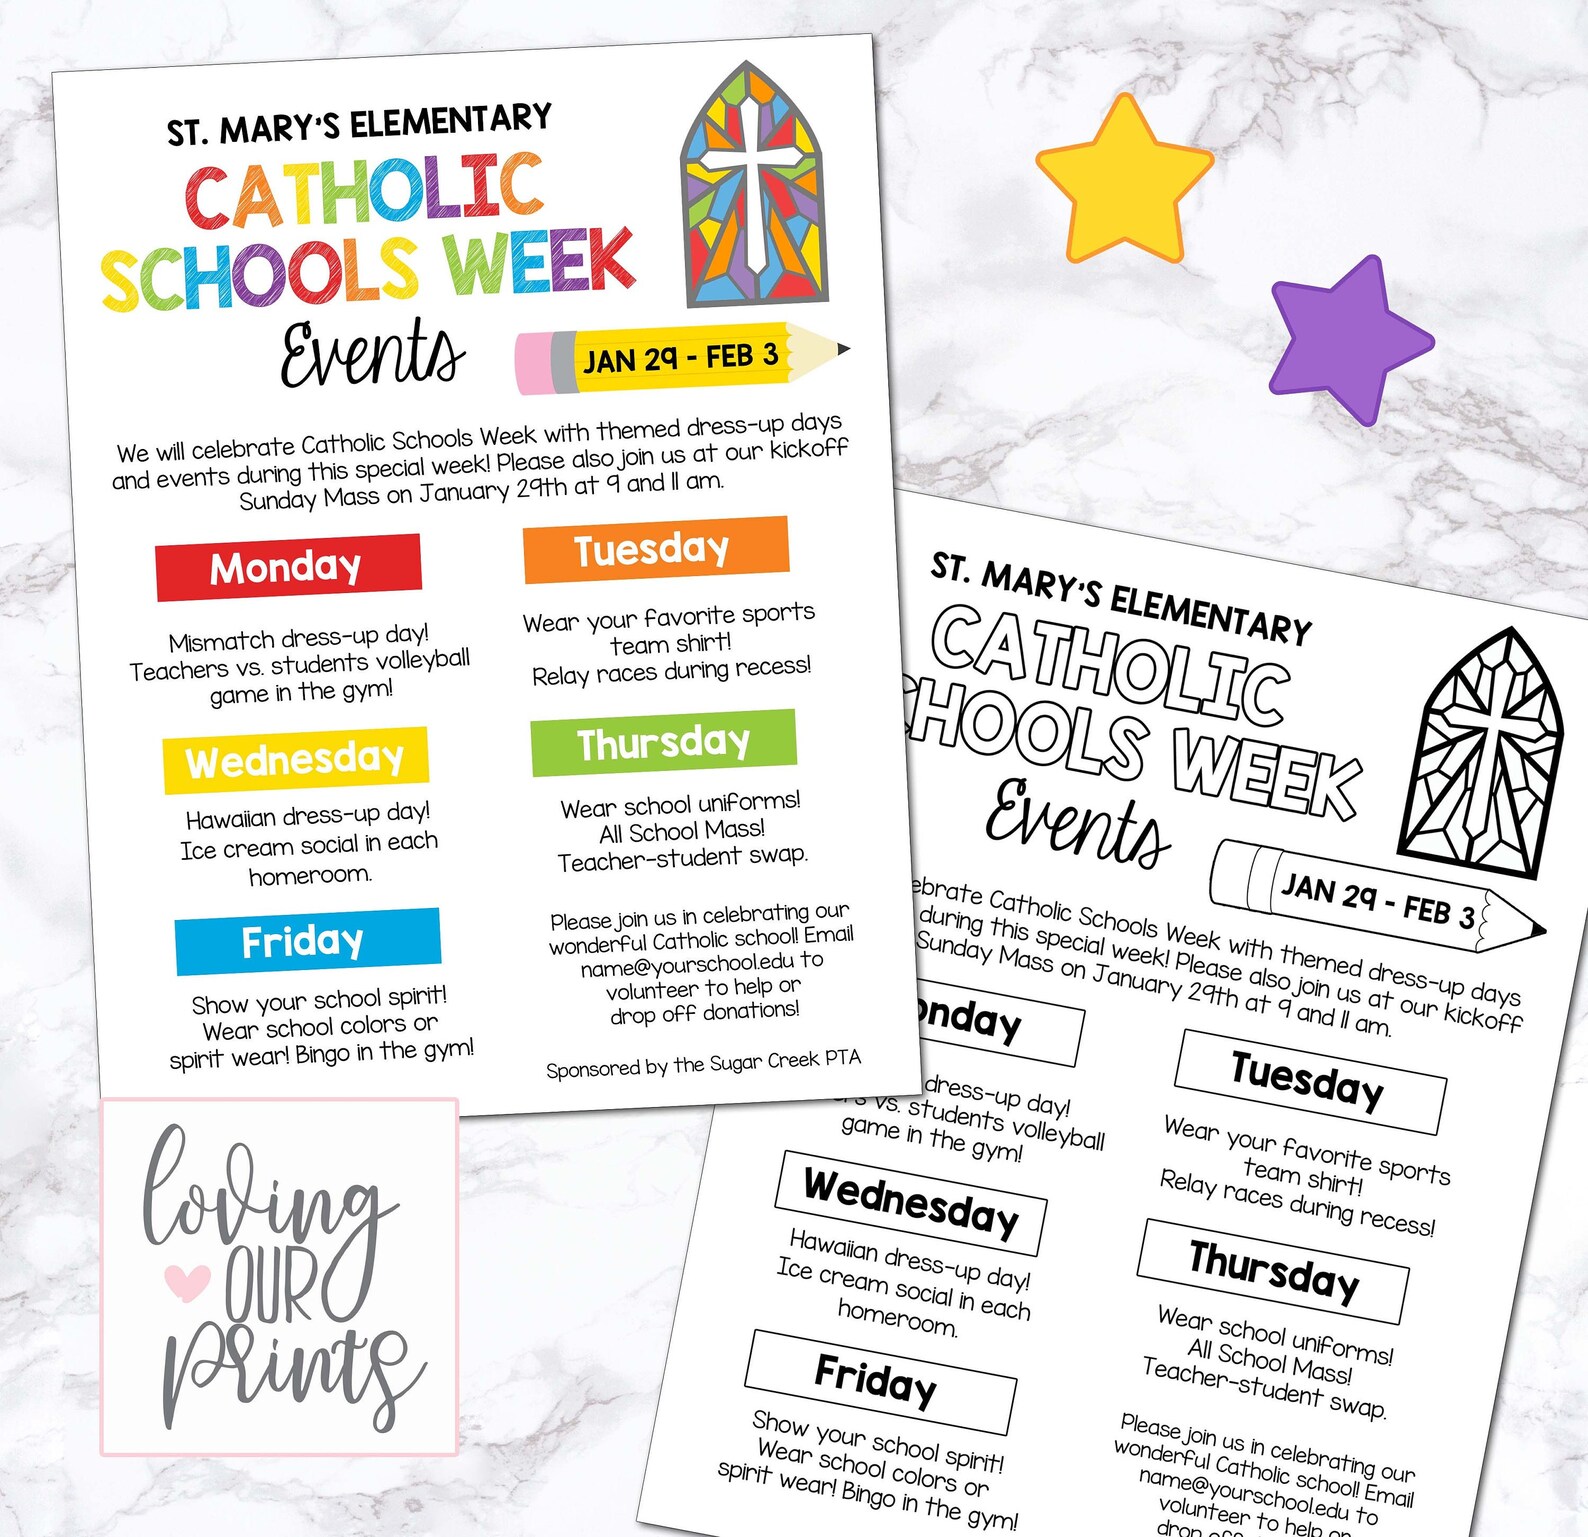 ST. MARY'S ELEMENTARY
CATHOLIC
SCHOOLS WEEK
Events
JAN 29 - FEB 3
We will celebrate Catholic Schools Week with themed dress-up days
and events during this special week! Please also join us at our kickoff
Sunday Mass on January 29th at 9 and 11 am.
Monday
Mismatch dress-up day!
Teachers vs. students volleyball
game in the gym!
Tuesday
Wear your favorite sports
team shirt!
Relay races during recess!
Wednesday
Hawaiian dress-up day!
Ice cream social in each
homeroom.
Thursday
Wear school uniforms!
All School Mass!
Teacher-student swap.
Friday
Show your school spirit!
Wear school colors or
spirit wear! Bingo in the gym!
Please join us in celebrating our
wonderful Catholic school! Email
name@yourschool.edu to
volunteer to help or
drop off donations!
Sponsored by the Sugar Creek PTA
loving
OUR
prints
ST. MARY'S ELEMENTARY
CATHOLIC
CHOOLS WEEK
Events
JAN 29 - FEB 3
ebrate Catholic Schools Week with themed dress-up days
during this special week! Please also join us at our kickoff
Sunday Mass on January 29th at 9 and 11 am.
onday
dress-up day!
rs vs. students volleyball
game in the gym!
Tuesday
Wear your favorite sports
team shirt!
Relay races during recess!
Wednesday
Hawaiian dress-up day!
Ice cream social in each
homeroom.
Thursday
Wear school uniforms!
All School Mass!
Teacher-student swap.
Friday
Show your school spirit!
Wear school colors or
spirit wear! Bingo in the gym!
Please join us in celebrating our
wonderful Catholic school! Email
name@yourschool.edu to
volunteer to help or